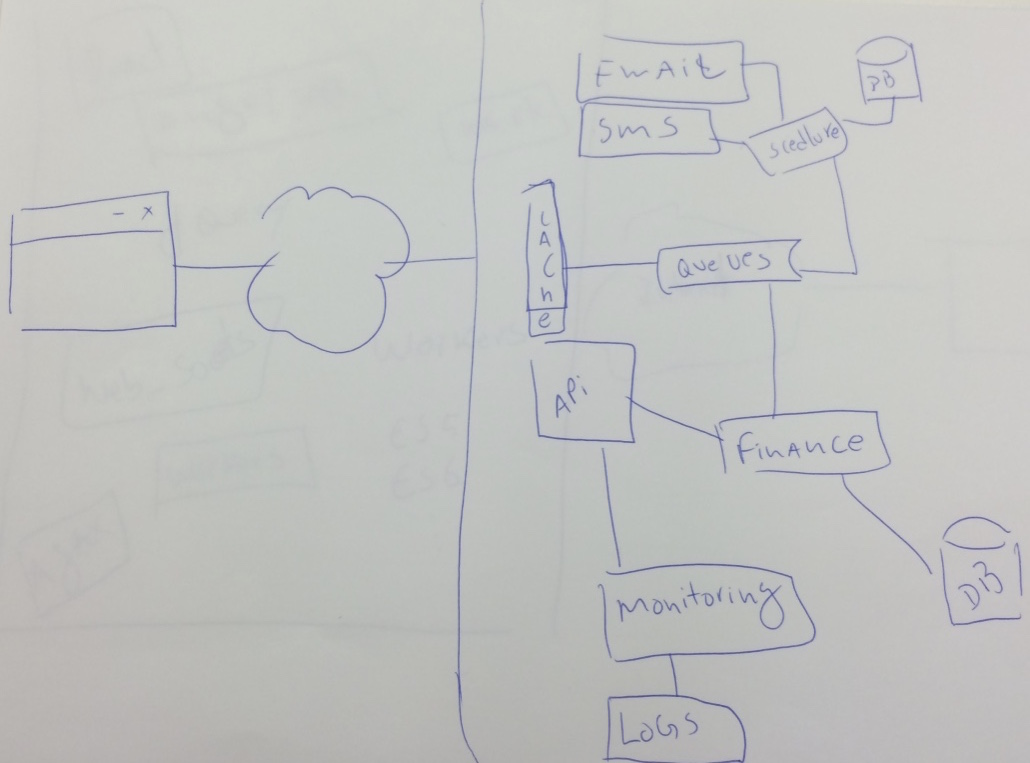 EmAil
SMS
DB
scedlure
- x
CAChe
Queues
APi
Finance
DB
Monitoring
LOGS